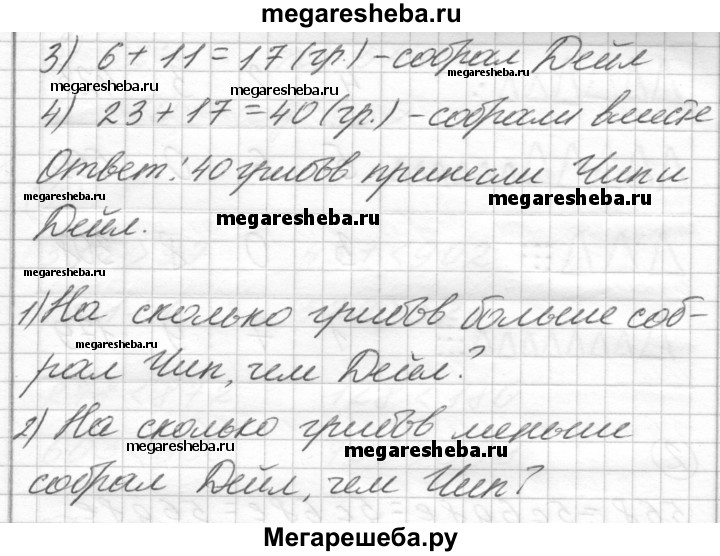 megaresheba.ru
3) 6 + 11 = 17 (гр.) - собрал Дейл
megaresheba.ru
megaresheba.ru
megaresheba.ru
4) 23 + 17 = 40 (гр.) - собрали вместе
Ответ: 40 грибов принесли Чип и
megaresheba.ru
megaresheba.ru
Дейл.
megaresheba.ru
megaresheba.ru
1) На сколько грибов больше соб-
megaresheba.ru
рал Чип, чем Дейл?
2) На сколько грибов меньше
megaresheba.ru
megaresheba.ru
собрал Дейл, чем Чип?
Мегарешеба.ру